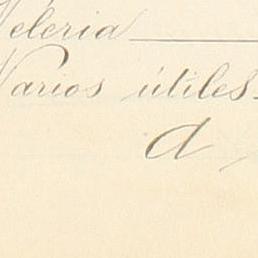 Veleria
Varios útiles
A